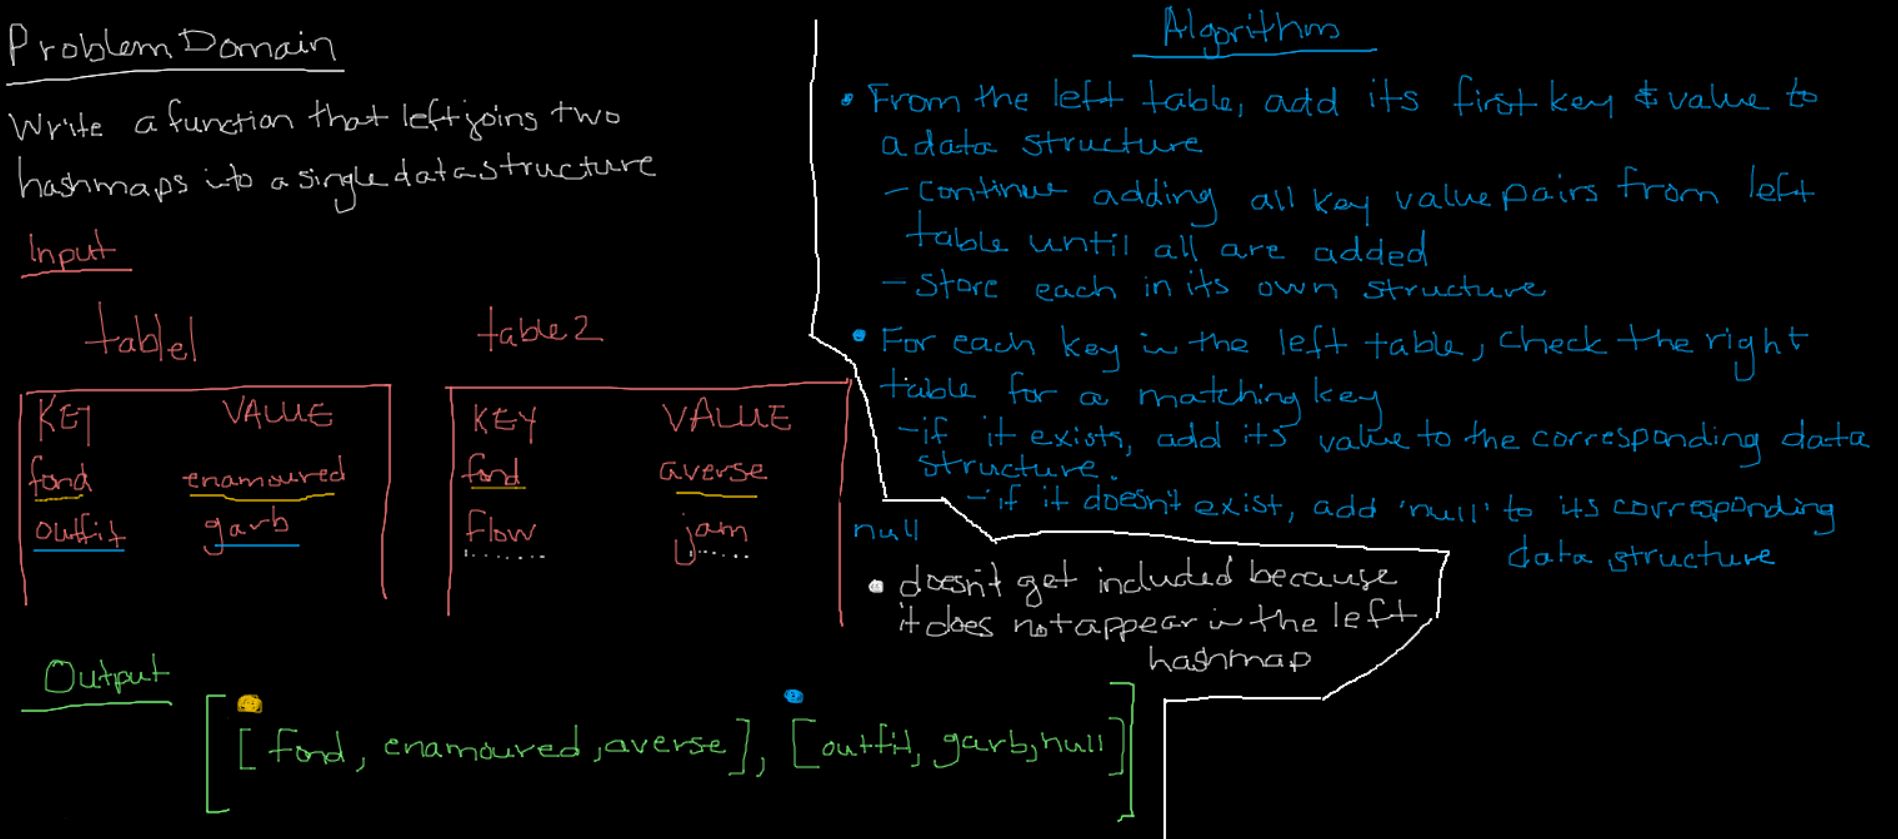 Problem Domain
Write a function that left joins two
hashmaps into a single data structure
Input
table1
KEY VALUE
fond enamoured
outfit garb
table 2
KEY VALUE
fond averse
flow jam
null
• doesn't get included because
it does not appear in the left
hashmap
Output
[[fond, enamoured, averse], [outfit, garb, null]]
Algorithm
• From the left table, add its first key & value to
a data structure
- continue adding all key value pairs from left
table until all are added
- Store each in its own structure
• For each key in the left table, check the right
table for a matching key
- if it exists, add its value to the corresponding data
structure.
- if it doesn't exist, add 'null' to its corresponding
data structure